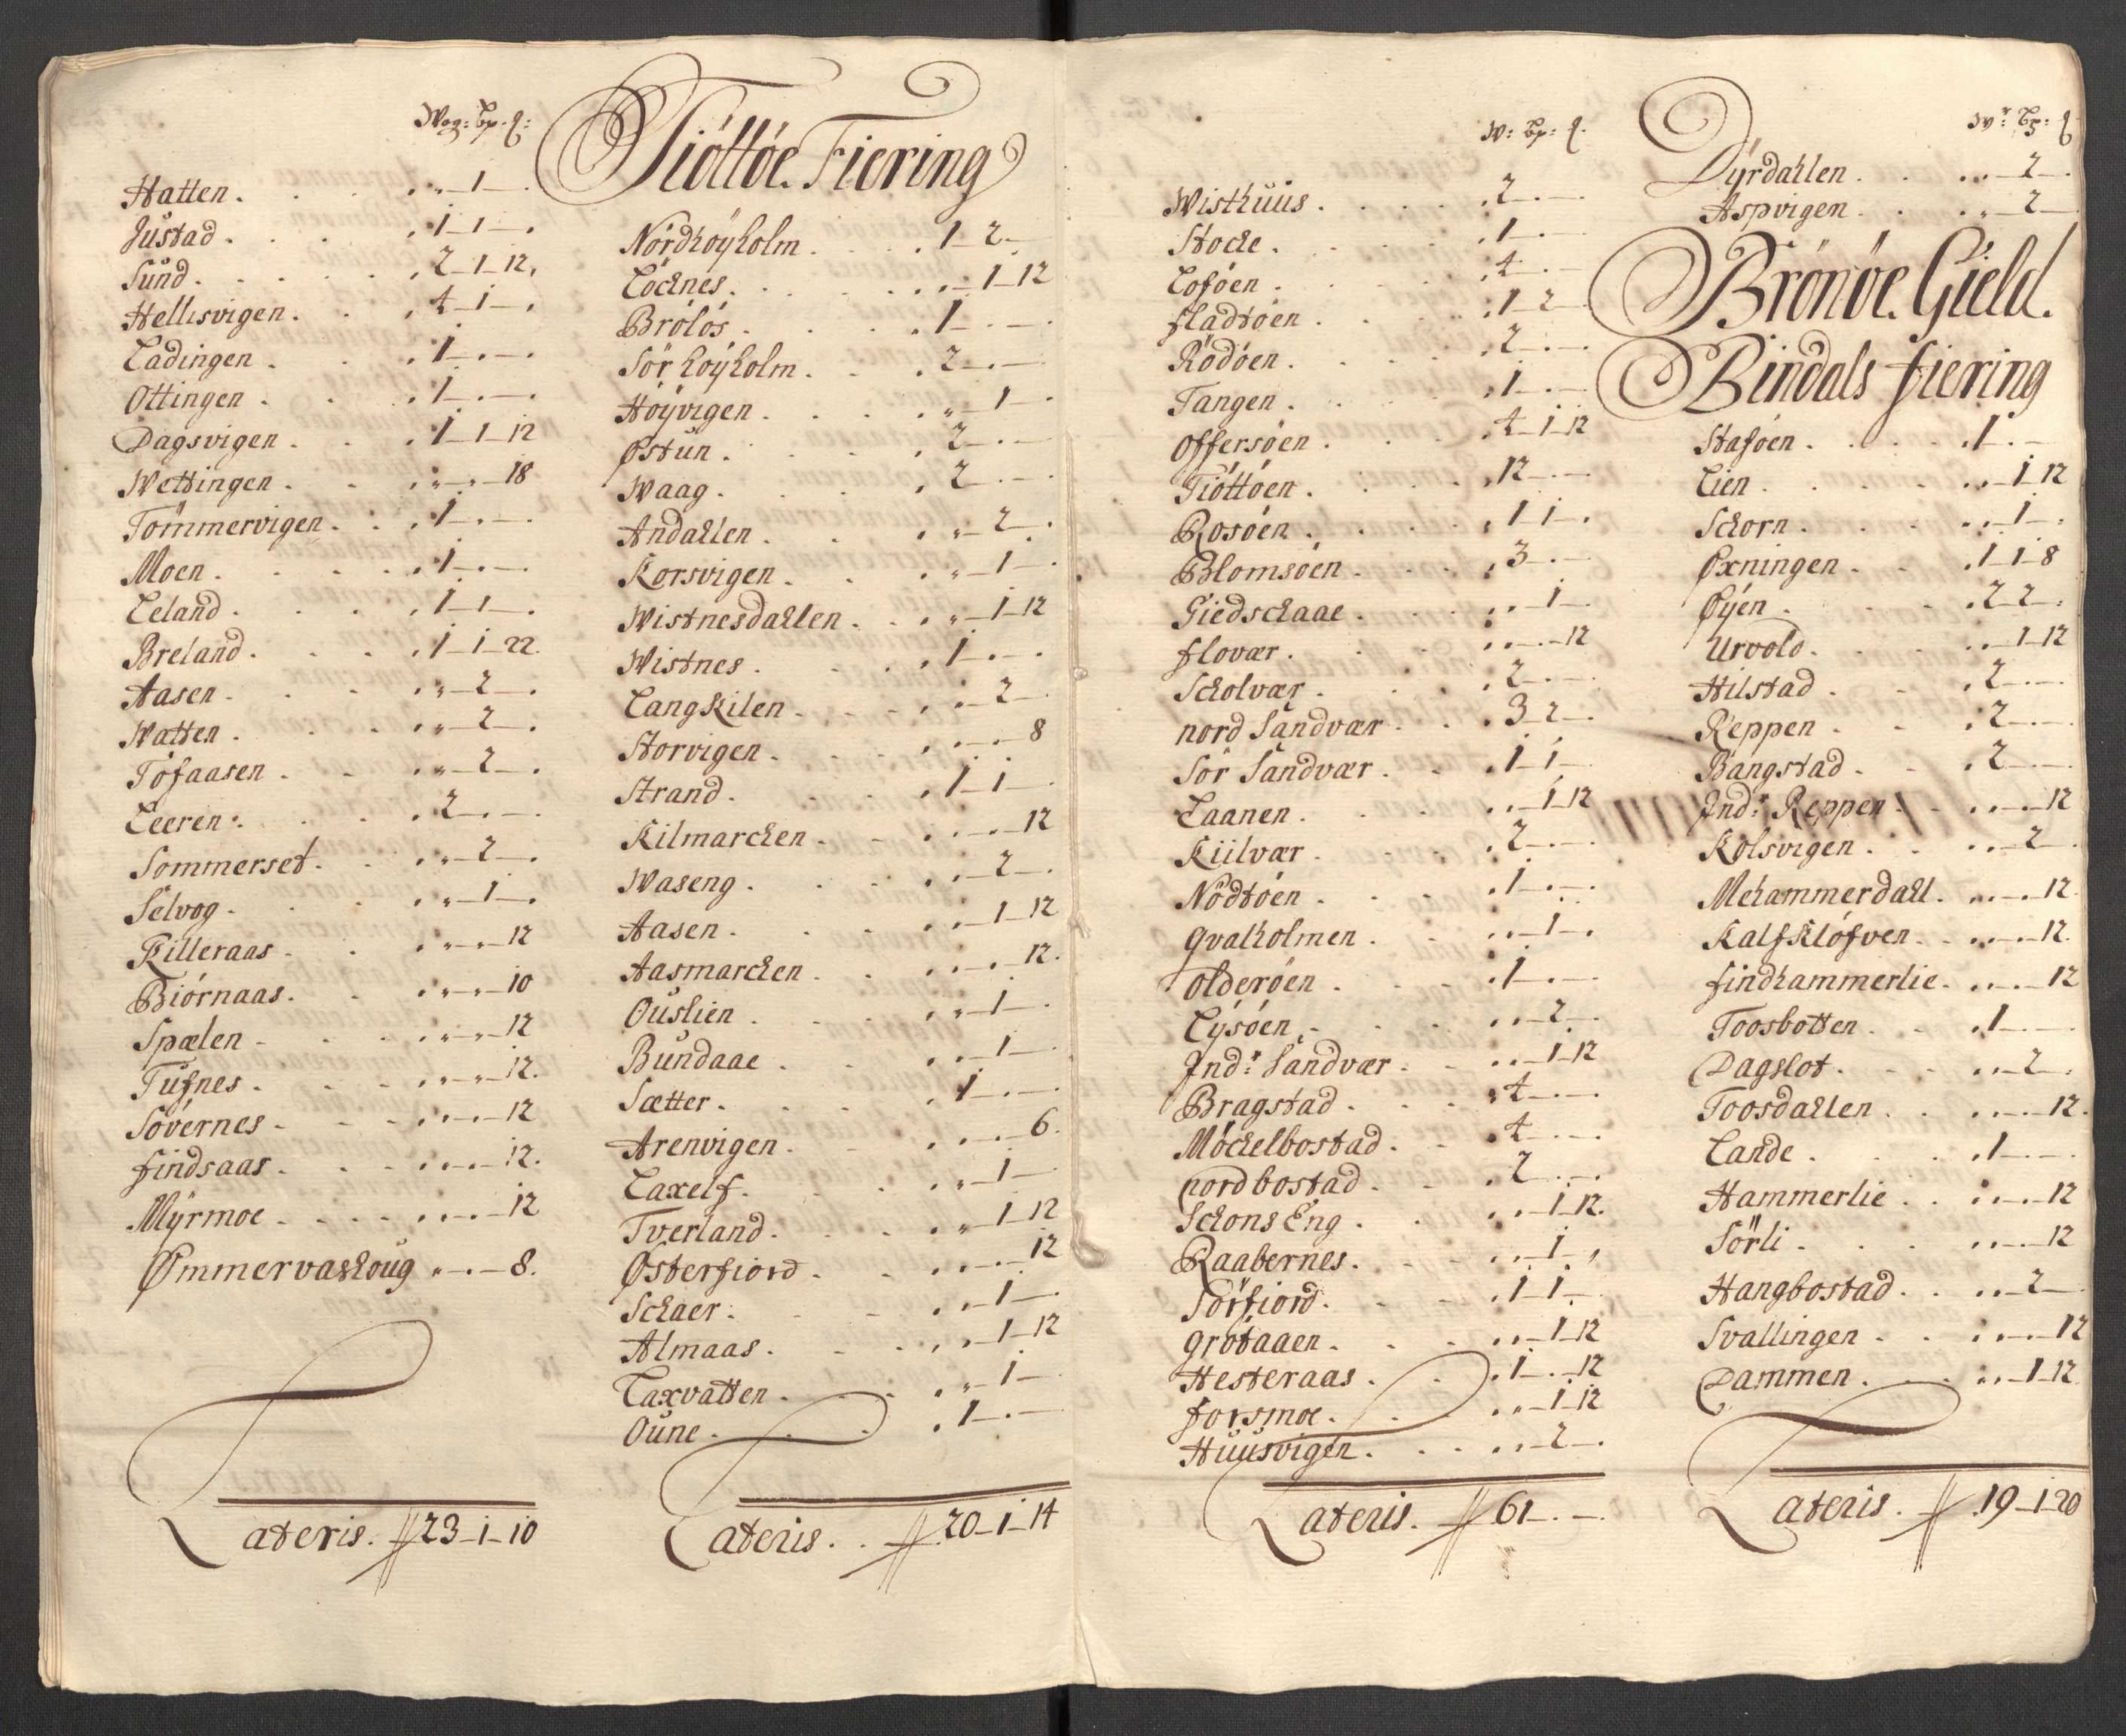 Wog: bp. q:
Hatten . . . „ 1 .
Justad . . . 1 1 .
Sund . . . 2 1 12
Hellisvigen . . 4 1 .
Ladingen . . 1 . .
Ottingen . . 1 . .
Dagsvigen . . 1 1 12
Wettingen . . „ „ 18
Tömmervigen . . 1 . .
Moen . . . 1 . .
Leland . . . 1 1 .
Breland . . . 1 1 22.
Aasen . . . „ 2 .
Watten . . . „ 2 .
Tofaasen . . „ 2 .
Leeren . . 2 . .
Sommerset . . „ 2 .
Selvog . . . „ 1 .
Killeraas . . „ „ 12
Biörnaas . . „ „ 10
Spælen . . . „ „ 12
Tufnes . . . „ „ 12.
Sövernes . . . . 12
findsaas . . . . 12.
Mÿrmoe . . . . 12
Ømmervashoug „ . 8.
Lateris. # 23 1 10
Tiöttöe. Fiering
Nordhöÿholm . . 1 2 .
Löcknes . . . „ 1 12
Brölös . . . 1 . .
Sör höÿholm . . 2 . .
Höÿvigen . . . „ 1 .
Østun . . . 2 . .
Waag . . . 2 . .
Andahlen . . „ 2 .
Korsvigen . . „ 1 .
Wistnesdahlen . . „ 1 12
Wistnes . . . 1 . .
Langkilen . . . . 2 .
Storvigen . . . . . 8
Strand . . . 1 1 .
Kilmarchen . . . . 12
Waseng . . . . 2 .
Aasen . . . . 1 12
Aasmarchen . . . . 12.
Ouslien . . . „ 1 .
Bundaae . . . . 1 .
Sætter . . . 1 . .
Arenvigen . . . . 6.
Laxelf . . . „ 1 .
Tverland . . . „ 1 12
Østerfiord . . . . 12
Schaer . . . . 1 .
Almaas . . . . 1 12
Laxvatten . . . „ 1 .
Oune . . . 1 . .
Lateris. . # 20 1 14
W: bp: q.
Wisthuus . . . 2 . .
Stocke . . . 1 . .
Loföen . . . 4 . .
fladtöen . . . 1 2 .
Rödöen . . . 2 . .
Tangen . . . 1 . .
Offersöen . . . 4 1 12
Tiöttöen . . . 12 . .
Rosöen . . . 1 1 .
Blomsöen . . . 3 . .
Giedschaae . . . . 1 .
flovær . . . . . 12
Scholvær . . . 2 . .
nord Sandvær . . 3 2 .
Sör Sandvær . . 1 1 .
Laanen . . . . 1 12
Kiilvær . . . 2 . .
Nödtöen . . . 1 . .
Qvalholmen . . . 1 .
Olderöen . . . 1 . .
Lÿsöen . . . . 2 .
Ind: Sandvær . . . 1 12
Bragstad . . . 4 . .
Möchelbostad . . 4 . .
nordbostad . . 2 . .
Schons Eng . . . 1 12.
Raabernes . . . . 1 .
Sörfiord . . . 1 1 .
Grötaaen . . . . 1 12
Hesteraas . . 1 . 12
forsmoe . . . „ 1 12
Huusvigen . . . . 2 .
Lateris. # 61 . .
Wr: bp: q
Dÿrdahlen . . . . 2 .
Aspvigen . . . „ 2 .
Brönöe. Gield.
Bindals fiering
Staföen . . . 1 . .
Lien . . . . 1 12
Schorn . . . . 1 .
Øxningen . . 1 1 8
Øÿen . . . 2 2 .
Urvold . . . . 1 12
Hilstad . . . 2 . .
Reppen . . 2 . .
Bangstad . . 2 . .
Ind: Reppen . . . . 12
Kolsvigen . . . . 2 .
Mehammerdahl . . . . 12.
Kalfklöfven . . . . 12.
findhammerlie . . . . 12
Toosbotten . . 1 . .
Dagslot . . . . 2 .
Toosdahlen . . . . 12.
Lande . . . 1 . .
Hammerlie . . . . 12
Sörli . . . . . 12
Hangbostad . . . . 2 .
Svallingen . . . . . 12
Dammen . . . . 1 12
Lateris. # 19 1 20